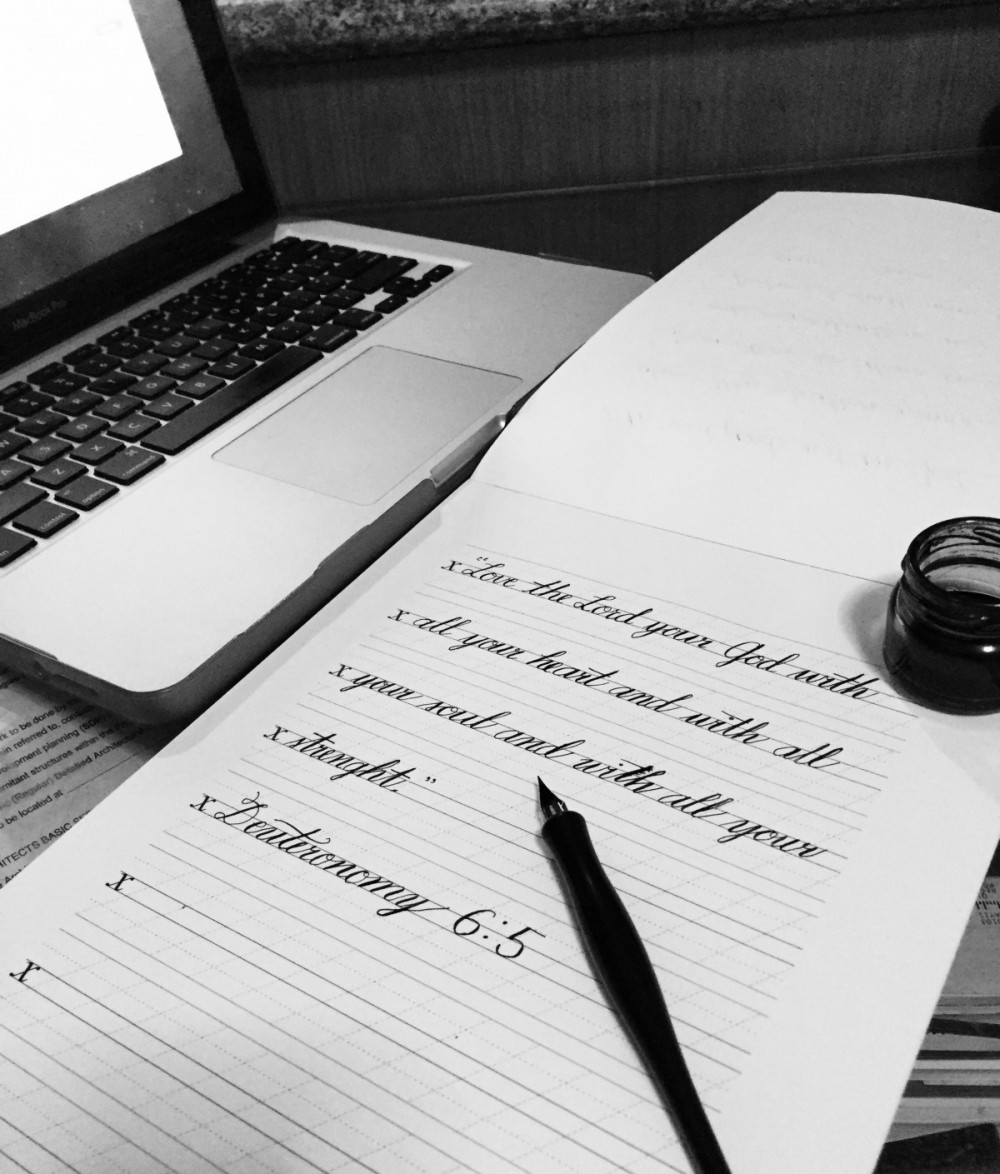 MacBook Pro
command
option
control
fn
x "Love the Lord your God with
x all your heart and with all
x your soul and with all your
x strenght."
x Deutironomy 6:5
x
x
to be done by
in referred to,
planning
structures within the
(Regular) Detailed
be located at
BASIC